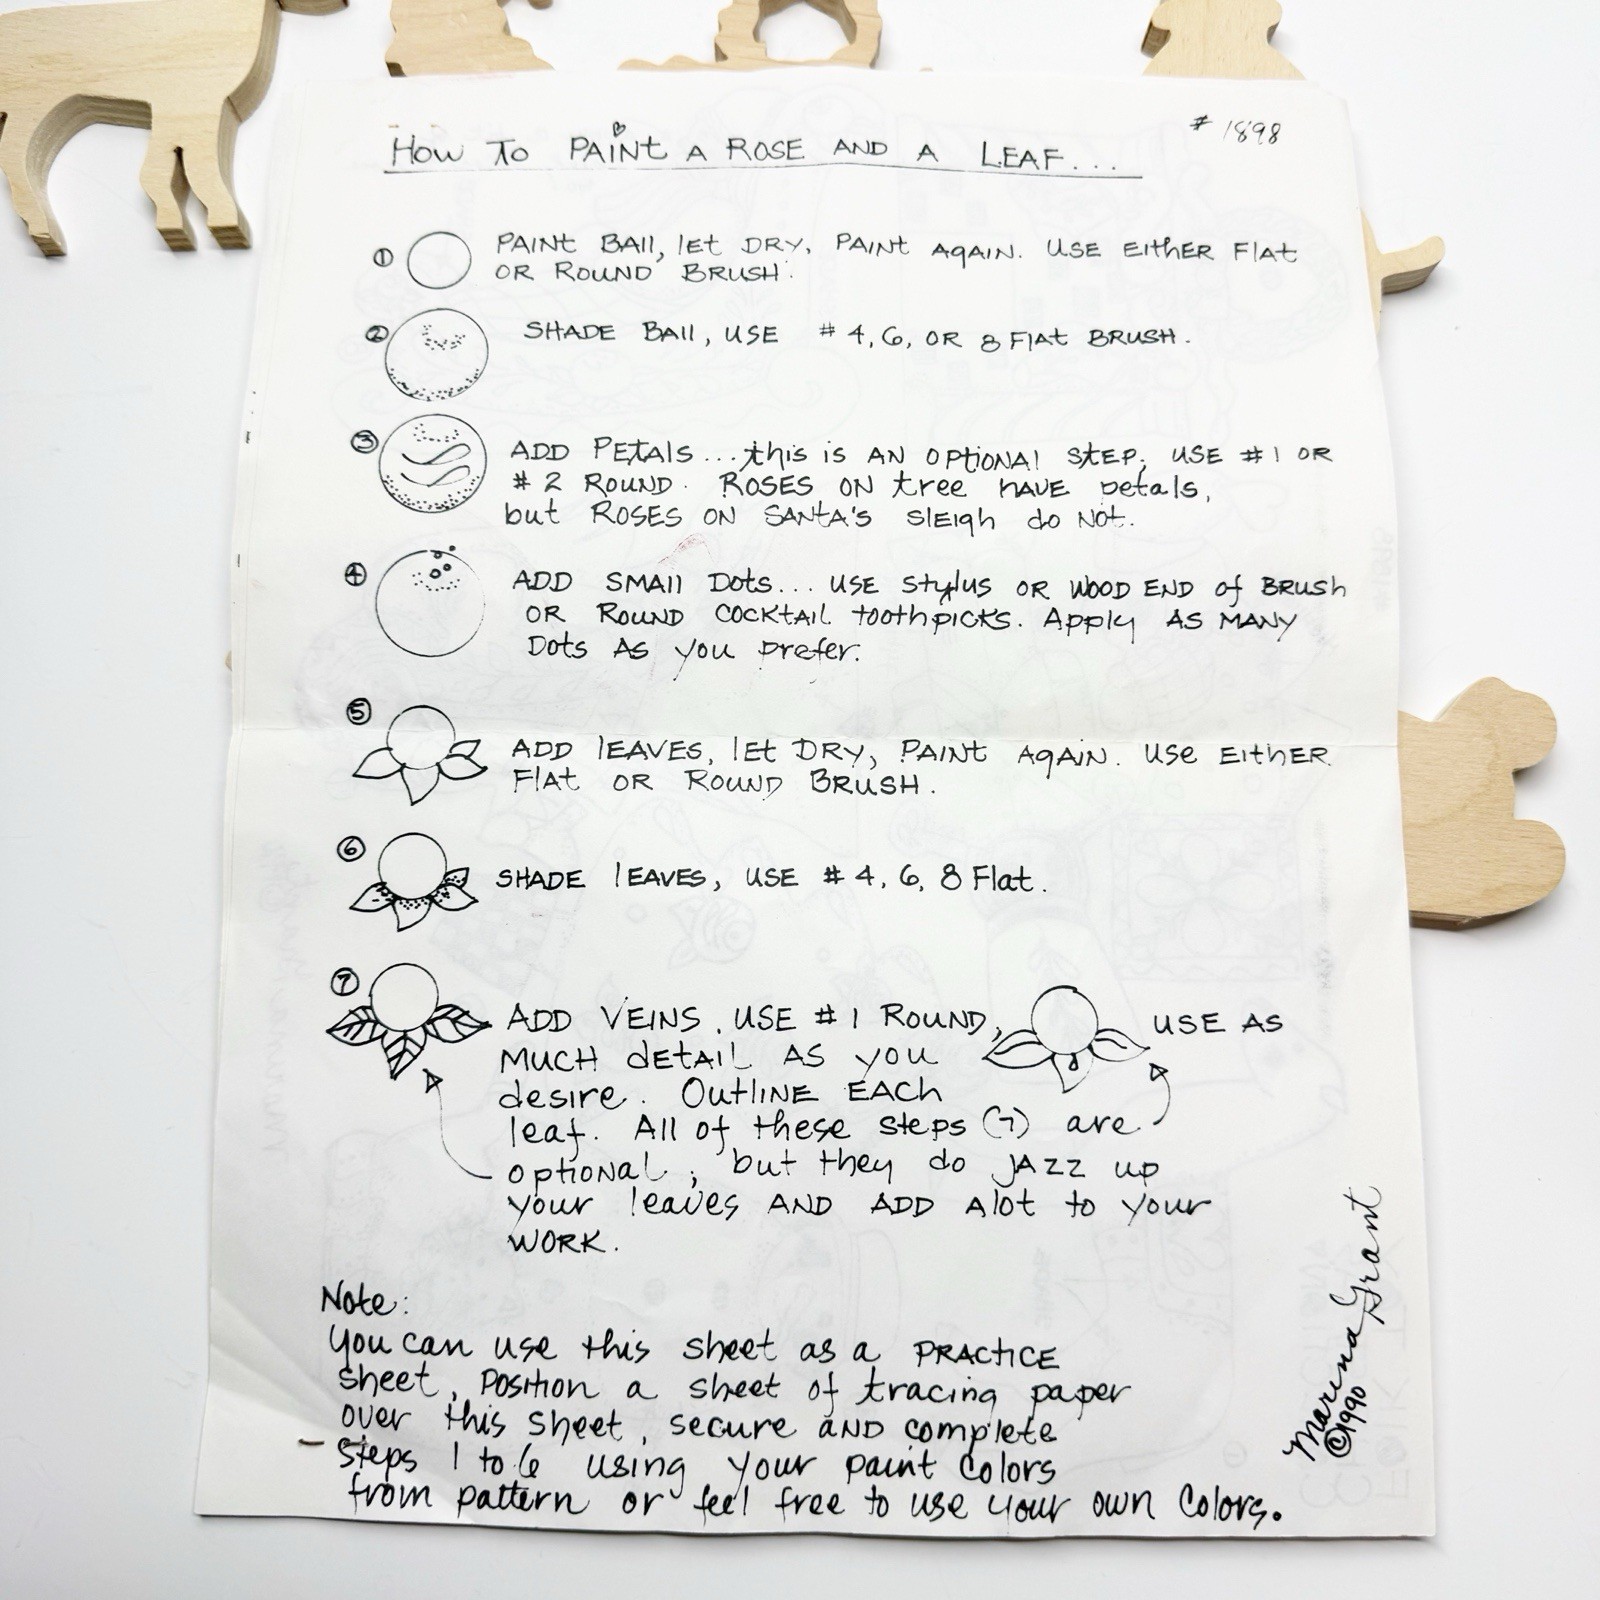 How To PAINt A ROSE AND A LEAF...
# 1898
① PAINt BAll, lEt DRY, PAINt AgAIN. USE EitHER Flat
OR ROUND BRUSH.
② SHADE BAll, USE # 4, 6, OR 8 Flat BRUSH.
③ ADD PEtAls...this is AN OptiONAl StEP; USE #1 OR
#2 ROUND. ROSES ON tree HAVE petals,
but ROSES ON SANtA'S SlEigh do NOt.
④ ADD SMAll Dots... USE Stylus OR WOOD END of BRUSH
OR ROUND COCKtAil toothpicks. Apply AS MANY
Dots AS you prefer.
⑤ ADD lEAVES, lEt DRY, PAINt AgAIN. USE EitHER
Flat OR ROUND BRUSH.
⑥ SHADE lEAVES, USE # 4, 6, 8 Flat.
⑦ ADD VEINS, USE #1 ROUND, USE AS
MUCH dEtAIL AS you
desire. OutlINE EACH
leaf. All of these steps (7) are
optiONAl, but they do JAZZ up
your leaves AND ADD Alot to your
WORK.
Note:
You can use this sheet as a PRACtiCE
sheet, Position a sheet of tracing paper
over this sheet, secure AND complete
steps 1 to 6 using your paint colors
from pattern or feel free to use your own colors.
Marina Grant
©1990